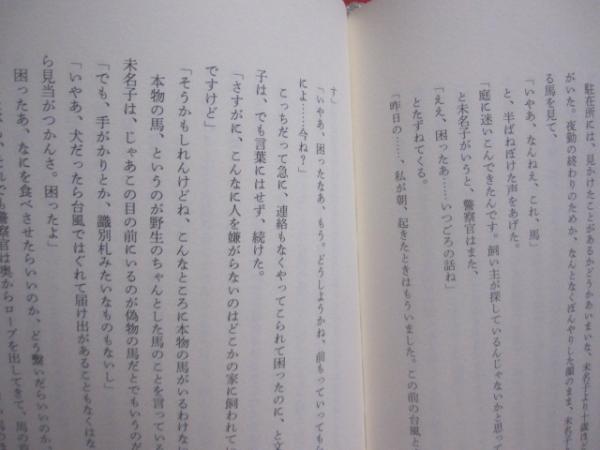 駐在所には、見かけたことがあるかどうかあいまいな、未名子より十歳ほど
がいた。夜勤の終わりのためか、なんとなくぼんやりした顔のまま、未名子
る馬を見て、
「いやあ、なんねえ、これ、馬」
と、半ばねぼけた声をあげた。
「庭に迷いこんできたんです。飼い主が探しているんじゃないかと思って
と未名子がいうと、警察官はまた、
「ええ、困ったあ……いつごろの話ね」
とたずねてくる。
「昨日の……、私が朝、起きたときはもういました。この前の台風と
す」
「いやあ、困ったなあ、もう。どうしようかね、前もっていってもな
によ……今ね?」
こっちだって急に、連絡もなくやってこられて困ったのに、と文
子は、でも言葉にはせず、続けた。
「さすがに、こんなに人を嫌がらないのはどこかの家に飼われてい
ですけど」
「そうかもしれんけどね、こんなところに本物の馬がいるわけな
本物の馬、というのが野生のちゃんとした馬のことを言っている
未名子は、じゃあこの目の前にいるのが偽物の馬だとでもいうのだ
「でも、手がかりとか、識別札みたいなものもないし」
「いやあ、犬だったら台風ではぐれて届け出があることもなくはな
ら見当がつかんさ。困ったよ」
困ったあ、なにを食べさせたらいいのか、どう繋いだらいいのか、
それでも警察官は奥からロープを出してきて、馬の首